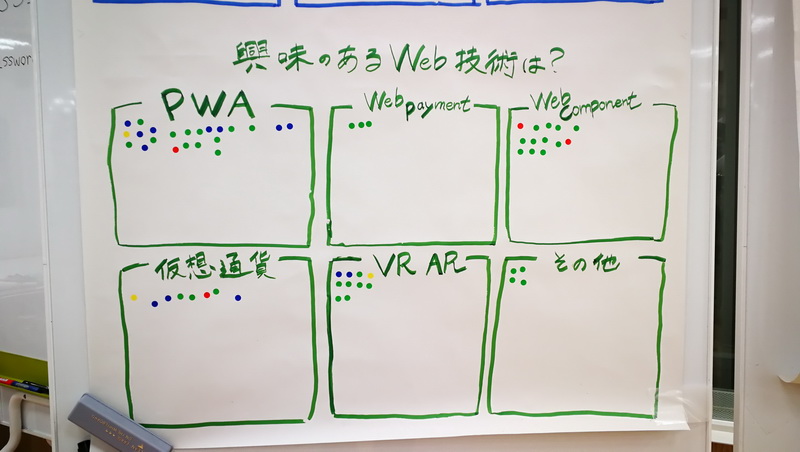 興味のあるWeb技術は?
PWA
Web payment
Web Component
仮想通貨
VR AR
その他